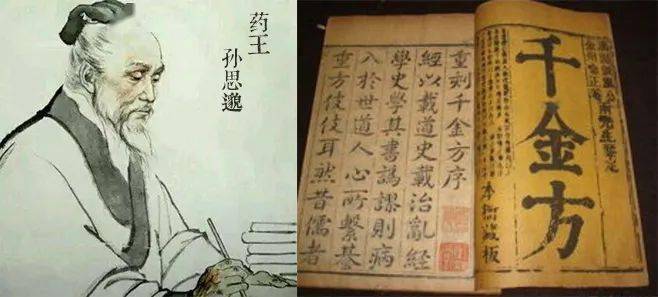 药王
孙思邈
重刻千金方序
經以載道史載治亂經
學史學其書譌謬則病
入於世道人心所繫綦
重方伎伎耳然昔儒者
千金方
本衙藏板